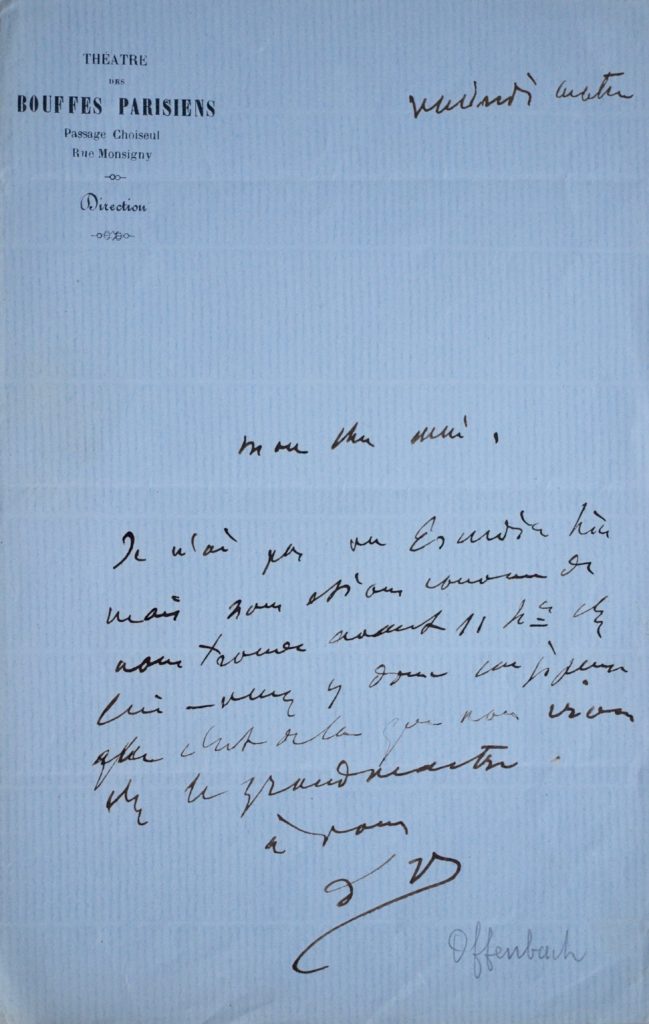 THÉATRE
DES
BOUFFES PARISIENS
Passage Choiseul
Rue Monsigny
Direction
vendredi matin
mon cher ami.
Je n'ai pas vu Escudier hier
mais nous étions convenu de
nous trouver avant 11 hes chez
lui – venez y donc car je pense
que c'est de la que nous irons
chez le grand maitre.
à vous
Offenbach